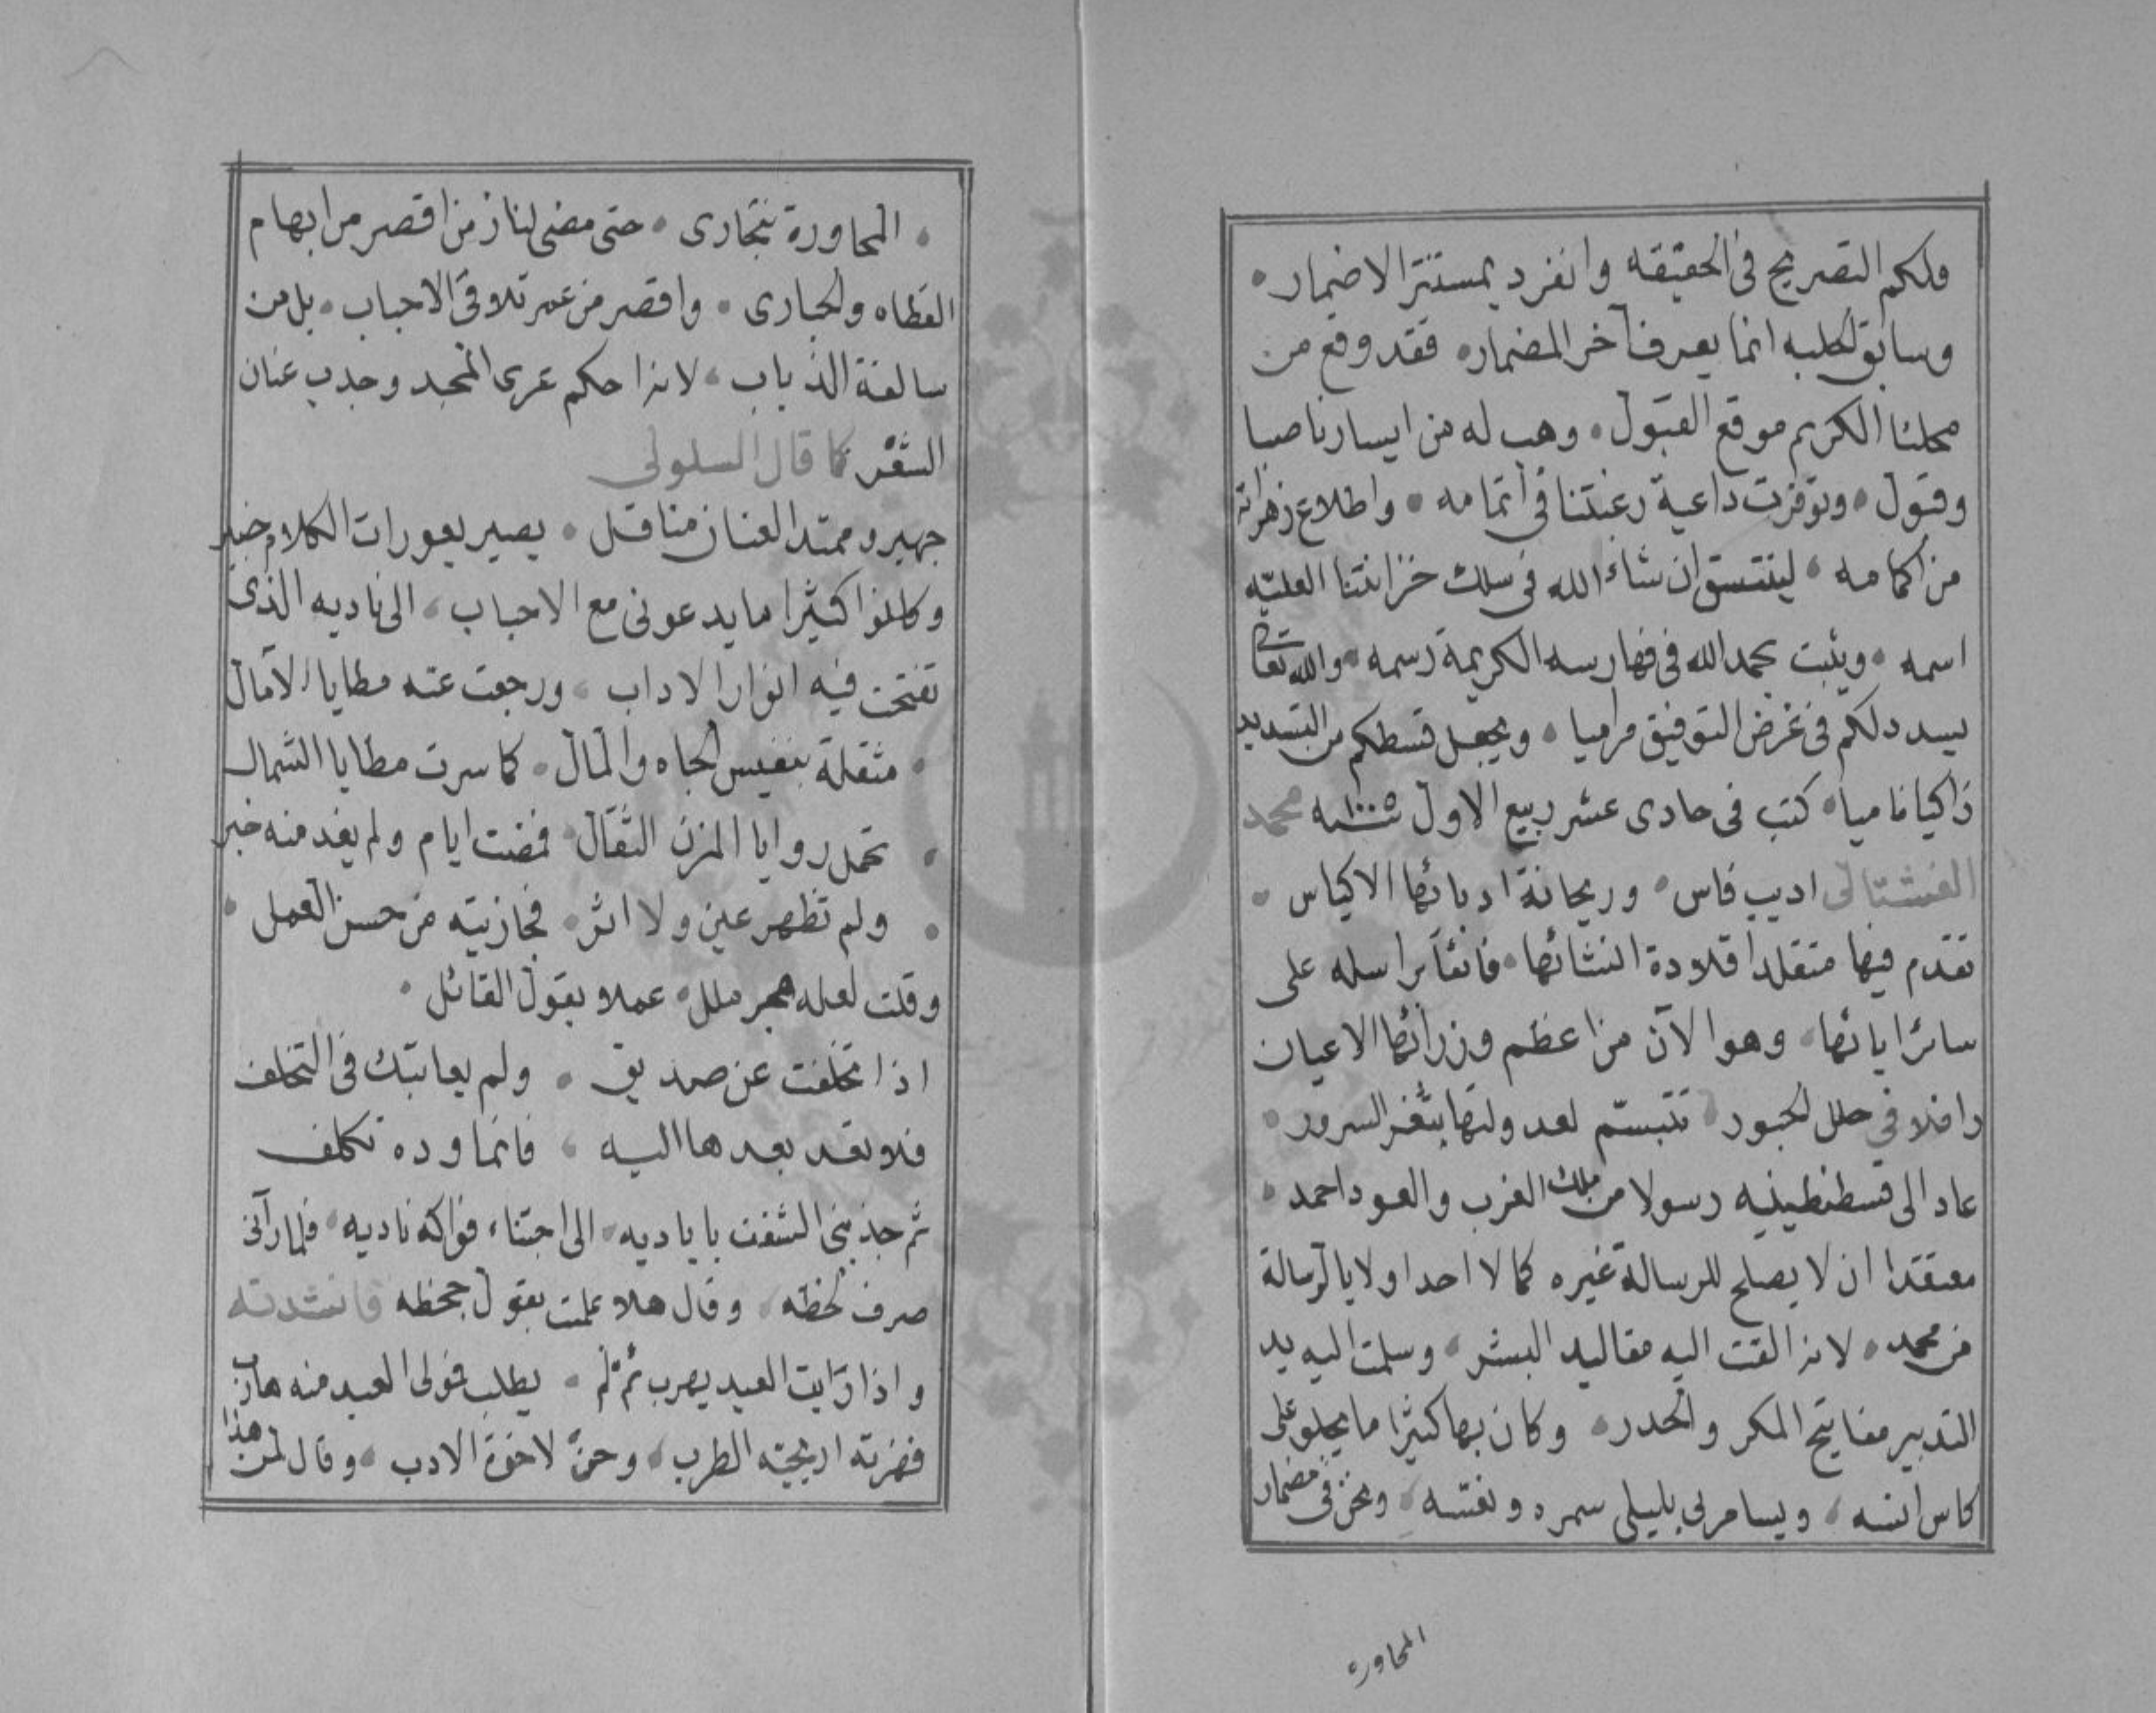 ولكم التصريح في الحقيقه وانفرد بمستتر الاضمار •
وسابق الحلبه انما يعرف آخر المضماره فقد وقع من
محلنا الكريم موقع القبول • وهب له من ايسارنا صبا
وقبول • وتوفرت داعية رغبتنا في اتمامه • واطلاع زهراته
من اكمامه • لينتسق ان شاء الله في سلك خزانتنا العليّه
اسمه • ويثبت بحمد الله في فهارسه الكريمة رسمه • والله تعالى
يسدد لكم في غرض التوفيق مراميا • ويجعل قسطكم من التسديد
زاكيا ناميا • كتب في حادى عشر ربيع الاول سنه ١٠٠٥ محمد
الفشتالى اديب فاس • وريحانة ادبائها الاكياس •
تقدم فيها متقلدا قلادة انشائها • فائقا براسله على
سائر ابائها • وهو الآن من اعظم وزرائها الاعيان
رافلا في حلل الحبور • تتبسّم لعد ولتها بثغر السرور •
عاد الى قسطنطينيه رسولا من ملك الغرب والعود احمد •
معتقدا ان لا يصلح للرسالة غيره كما لا احد اولا بالرسالة
من محمد • لانه القت اليه مقاليد البشر • وسلمت اليه يد
التدبير مفاتيح المكر والحدر • وكان بها كثيرا ما يجلو على
كاس انسه • ويسامر لى بليلى سمره ونفسه • ونحن في مضمار
المحاوره
• المحاورة نتجارى • حتى مضى لنا زمن اقصر من ابهام
القطاه والحبارى • واقصر من عمر تلاقى الاحباب • بل من
سالفة الذباب • لانه احكم عرى المجد وجدب عنان
الشعر كما قال السلولى
جهير وممتد العنان مناقل • بصير بعورات الكلام خبير
وكان كثيرا ما يدعونى مع الاحباب • الى ناديه الذى
تفتحت فيه انوار الاداب • ورجعت عنه مطايا الآمال
• مثقلة بنفيس الجاه والمال • كما سرت مطايا الشمال
• تحمل روايا المزن الثقال • فمضت ايام ولم يفد منه خبر
• ولم تظهر عين ولا اثر • فجازيته من حسن العمل •
وقلت لعله هجر ملل • عملا بقول القائل •
اذا تخلفت عن صديق • ولم يعاتبك في التخلف
فلا تعد بعدها اليه • فانما وده تكلف
ثم جذبنى الشغف باياديه • الى اجتناء فواكه ناديه • فلما رآنى
صرف لحظه • وقال هلا عملت بقول جحظه فانشدته
واذا رايت العبد يهرب ثم لم • يطلب فولى العبد منه هارب
فهزته اريحية الطرب • وحنّ لاخوة الادب • وقال لمن هذا